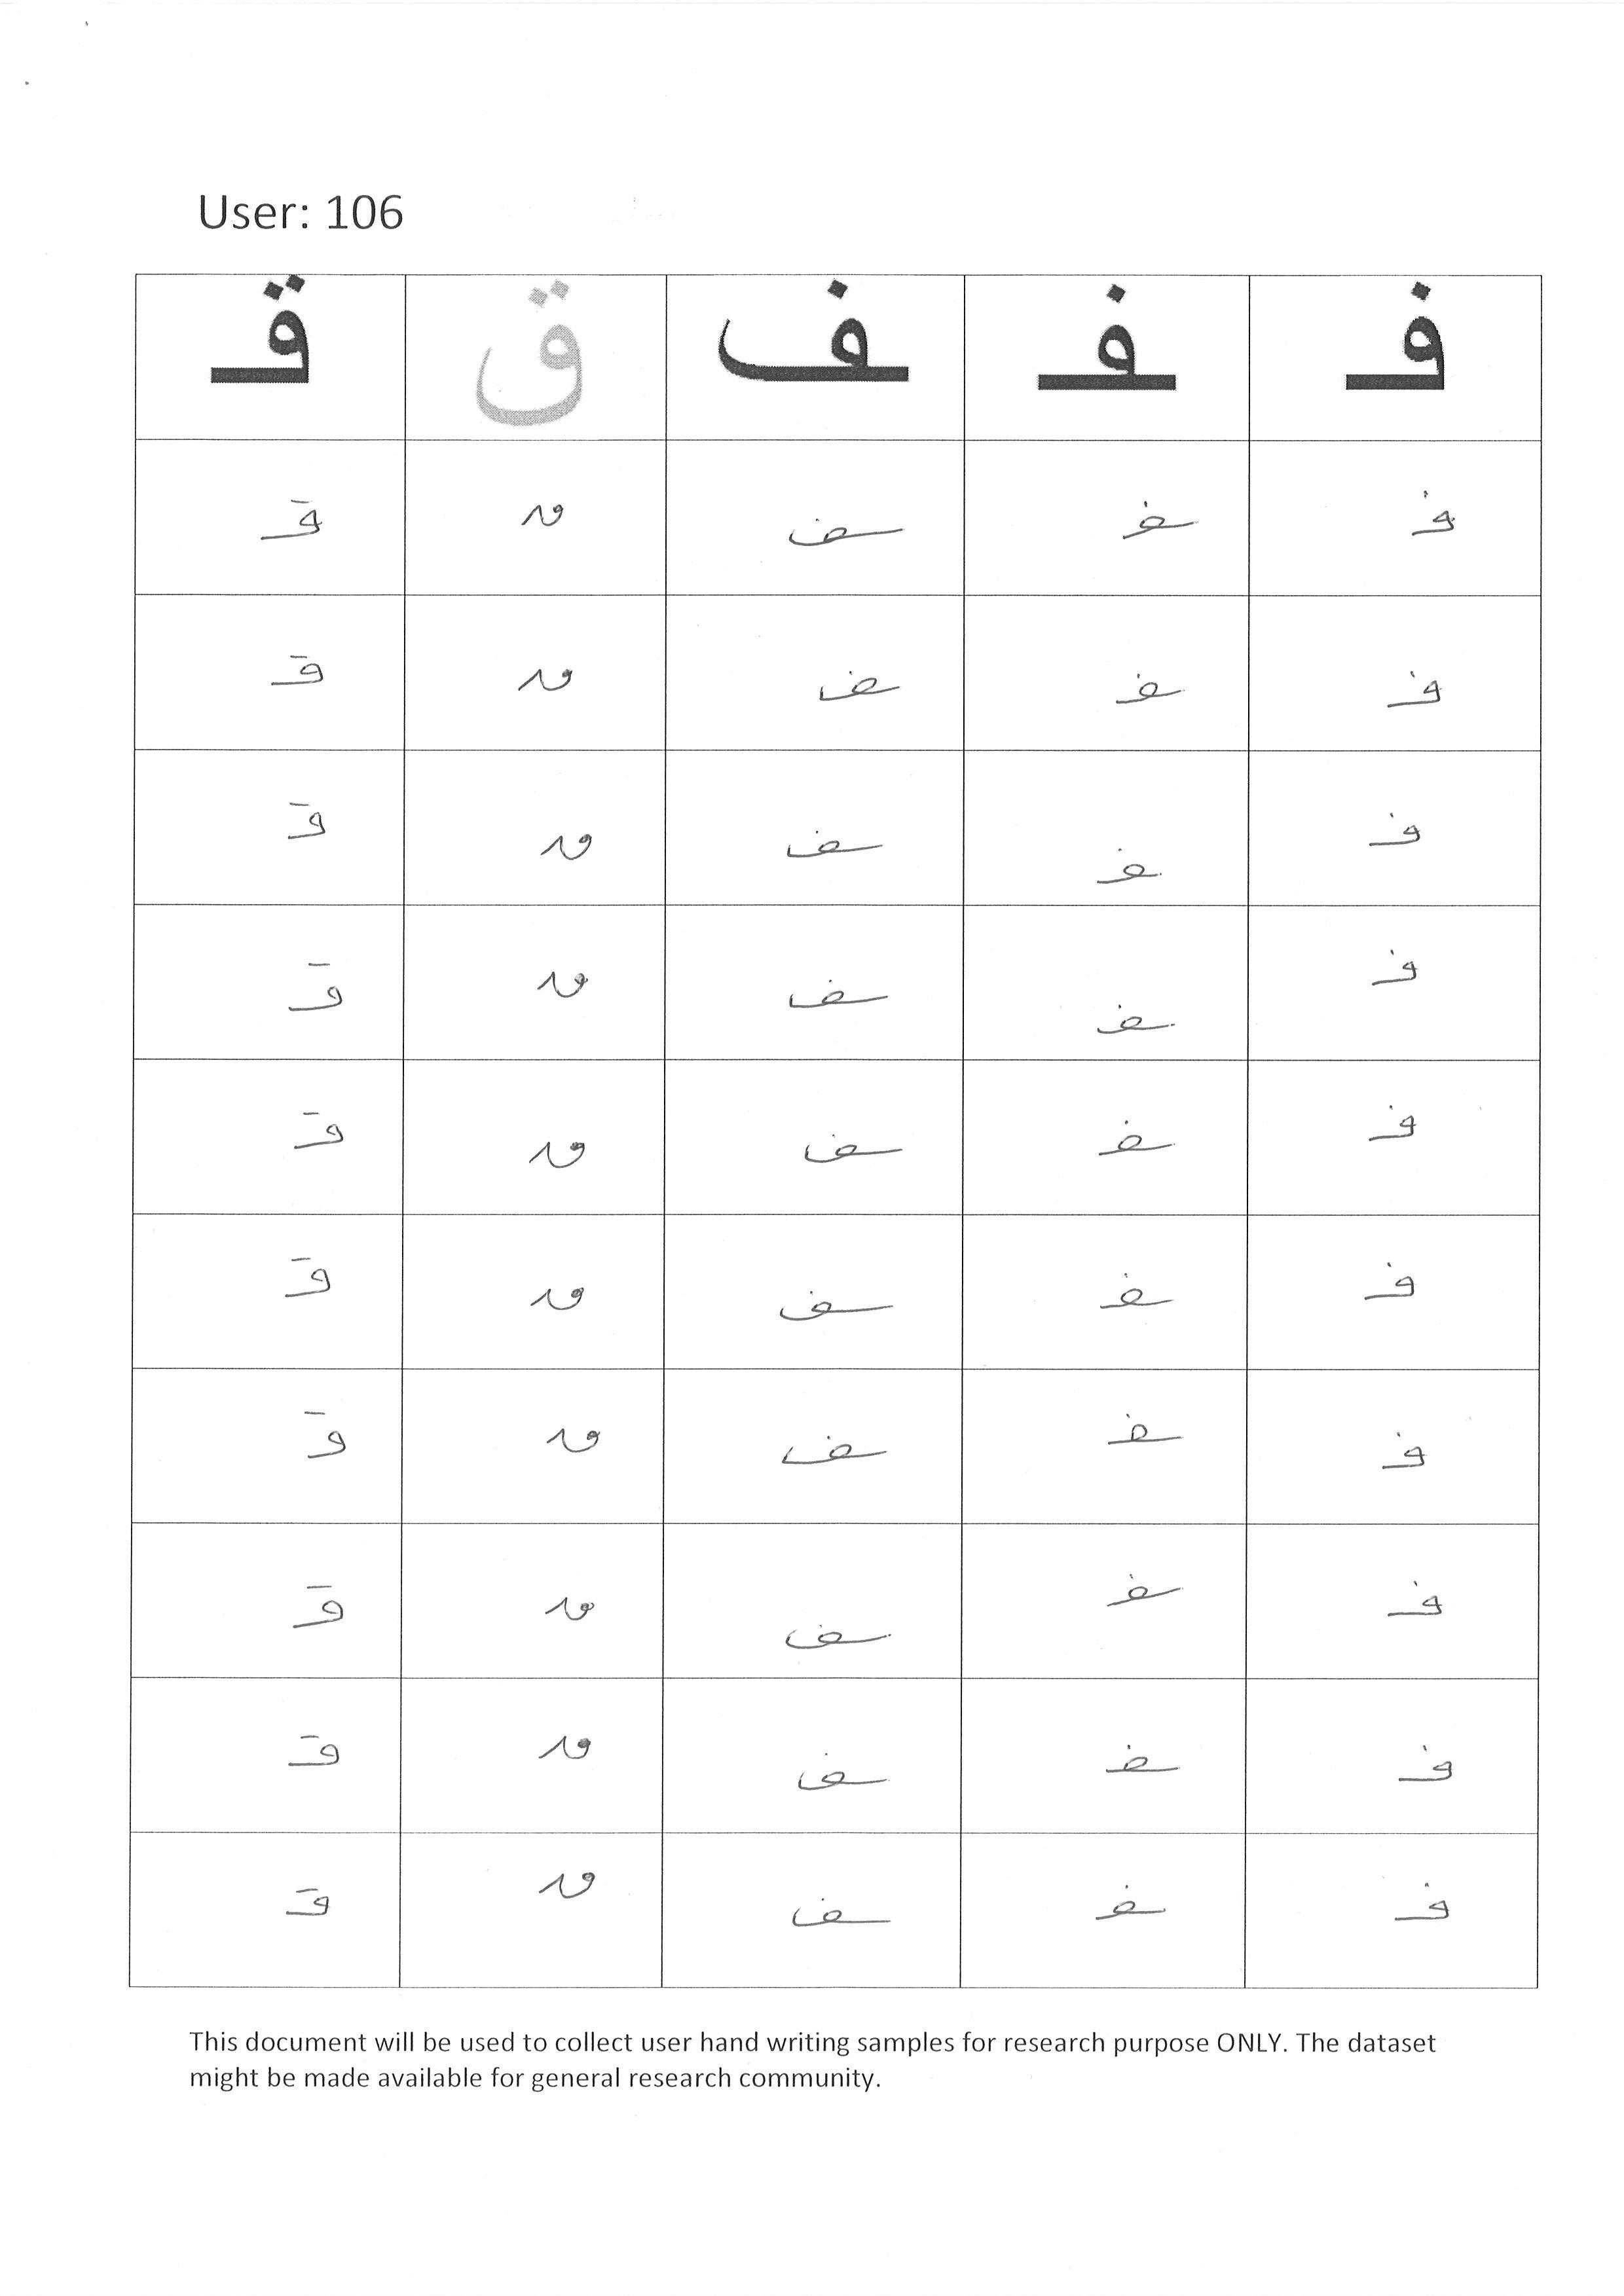 User: 106
فـ ـفـ ـف ق قـ
فـ ـفـ ـف ق قـ
فـ ـفـ ـف ق قـ
فـ ـفـ ـف ق قـ
فـ ـفـ ـف ق قـ
فـ ـفـ ـف ق قـ
فـ ـفـ ـف ق قـ
فـ ـفـ ـف ق قـ
فـ ـفـ ـف ق قـ
فـ ـفـ ـف ق قـ
فـ ـفـ ـف ق قـ
This document will be used to collect user hand writing samples for research purpose ONLY. The dataset
might be made available for general research community.